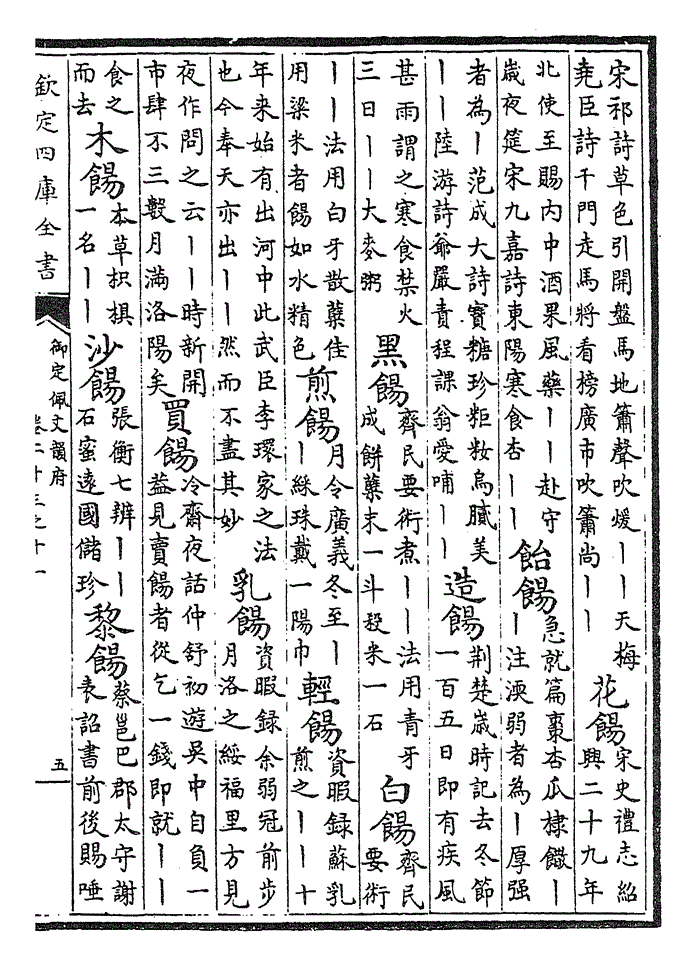 宋祁詩草色引開盤馬地簫聲吹煖丨丨天梅
堯臣詩千門走馬將看榜廣市吹簫尚丨丨
花餳
宋史禮志紹
興二十九年
北使至賜内中酒果風藥丨丨赴守
歲夜筵宋九嘉詩東陽寒食杏丨丨
飴餳
急就篇棗杏瓜棣饊丨
丨注渜弱者為丨厚强
者為丨范成大詩寶糖珍粔籹烏膩美
丨丨陸游詩爺嚴責程課翁愛哺丨丨
造餳
荆楚歲時記去冬節
一百五日即有疾風
甚雨謂之寒食禁火
三日丨丨大麥粥
黑餳
齊民要術煮丨丨法用青牙
成餅糵末一斗殺米一石
白餳
齊民
要術
丨丨法用白牙散糵佳
用粱米者餳如水精色
煎餳
月令廣義冬至丨
丨綵珠戴一陽巾
輕餳
資暇録蘇乳
煎之丨丨十
年来始有出河中此武臣李環家之法
也今奉天亦出丨丨然而不盡其妙
乳餳
資暇録余弱冠前步
月洛之綏福里方見
夜作問之云丨丨時新開
市肆不三數月滿洛陽矣
買餳
冷齋夜話仲舒初遊吳中自負一
益見賣餳者從乞一錢即就丨丨
食之
而去
木餳
本草枳椇
一名丨丨
沙餳
張衡七辨丨丨
石蜜遠國儲珍
黎餳
蔡邕巴郡太守謝
表詔書前後賜唾
欽定四庫全書
御定佩文韻府
卷二十三之十一
五